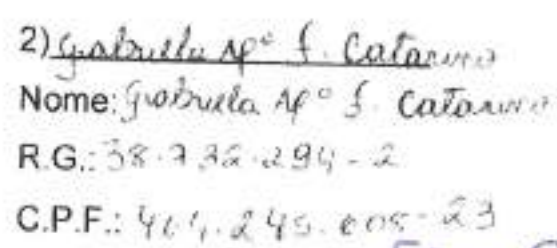 2) Gabriella Apº f. Catarino
Nome: Gabriela Apº f. Catarino
R.G.: 38.732.294-2
C.P.F.: 23